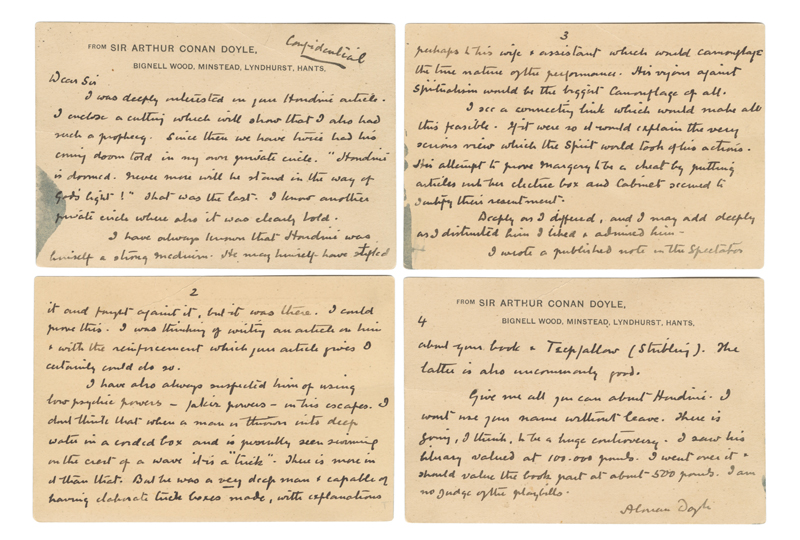 Confidential
FROM SIR ARTHUR CONAN DOYLE,
BIGNELL WOOD, MINSTEAD, LYNDHURST, HANTS.
Dear Sir
I was deeply interested in your Houdini article.
I enclose a cutting which will show that I also had
such a prophecy. Since then we have twice had his
coming doom told in my own private circle. "Houdini
is doomed. Never more will he stand in the way of
God's light!" That was the last. I know another
private circle where also it was clearly told.
I have always known that Houdini was
himself a strong medium. He may himself have stifled
2
it and fought against it, but it was there. I could
prove this. I was thinking of writing an article on him
& with the reinforcement which your article gives I
certainly could do so.
I have also always suspected him of using
low psychic powers – fakir powers – in his escapes. I
dont think that when a man is thrown into deep
water in a corded box and is presently seen swimming
on the crest of a wave it is a "trick". There is more in
it than that. But he was a very deep man & capable of
having elaborate trick boxes made, with explanations
3
perhaps to his wife & assistant which would camouflage
the true nature of the performance. His vigour against
Spiritualism would be the biggest Camouflage of all.
I see a connecting link which would make all
this feasible. If it were so it would explain the very
serious view which the Spirit world took of his actions.
His attempt to prove Margery to be a cheat by putting
articles into her electric box and Cabinet seemed to
justify their resentment.
Deeply as I differed, and I may add deeply
as I distrusted him I liked & admired him –
I wrote a published note in the Spectator
FROM SIR ARTHUR CONAN DOYLE,
BIGNELL WOOD, MINSTEAD, LYNDHURST, HANTS.
4
about your book & Teeftallow (Stribling). The
latter is also uncommonly good.
Give me all you can about Houdini. I
wont use your name without leave. There is
going, I think, to be a huge controversy. I saw his
library valued at 100.000 pounds. I went over it &
should value the book part at about 500 pounds. I am
no judge of the playbills.
A Conan Doyle